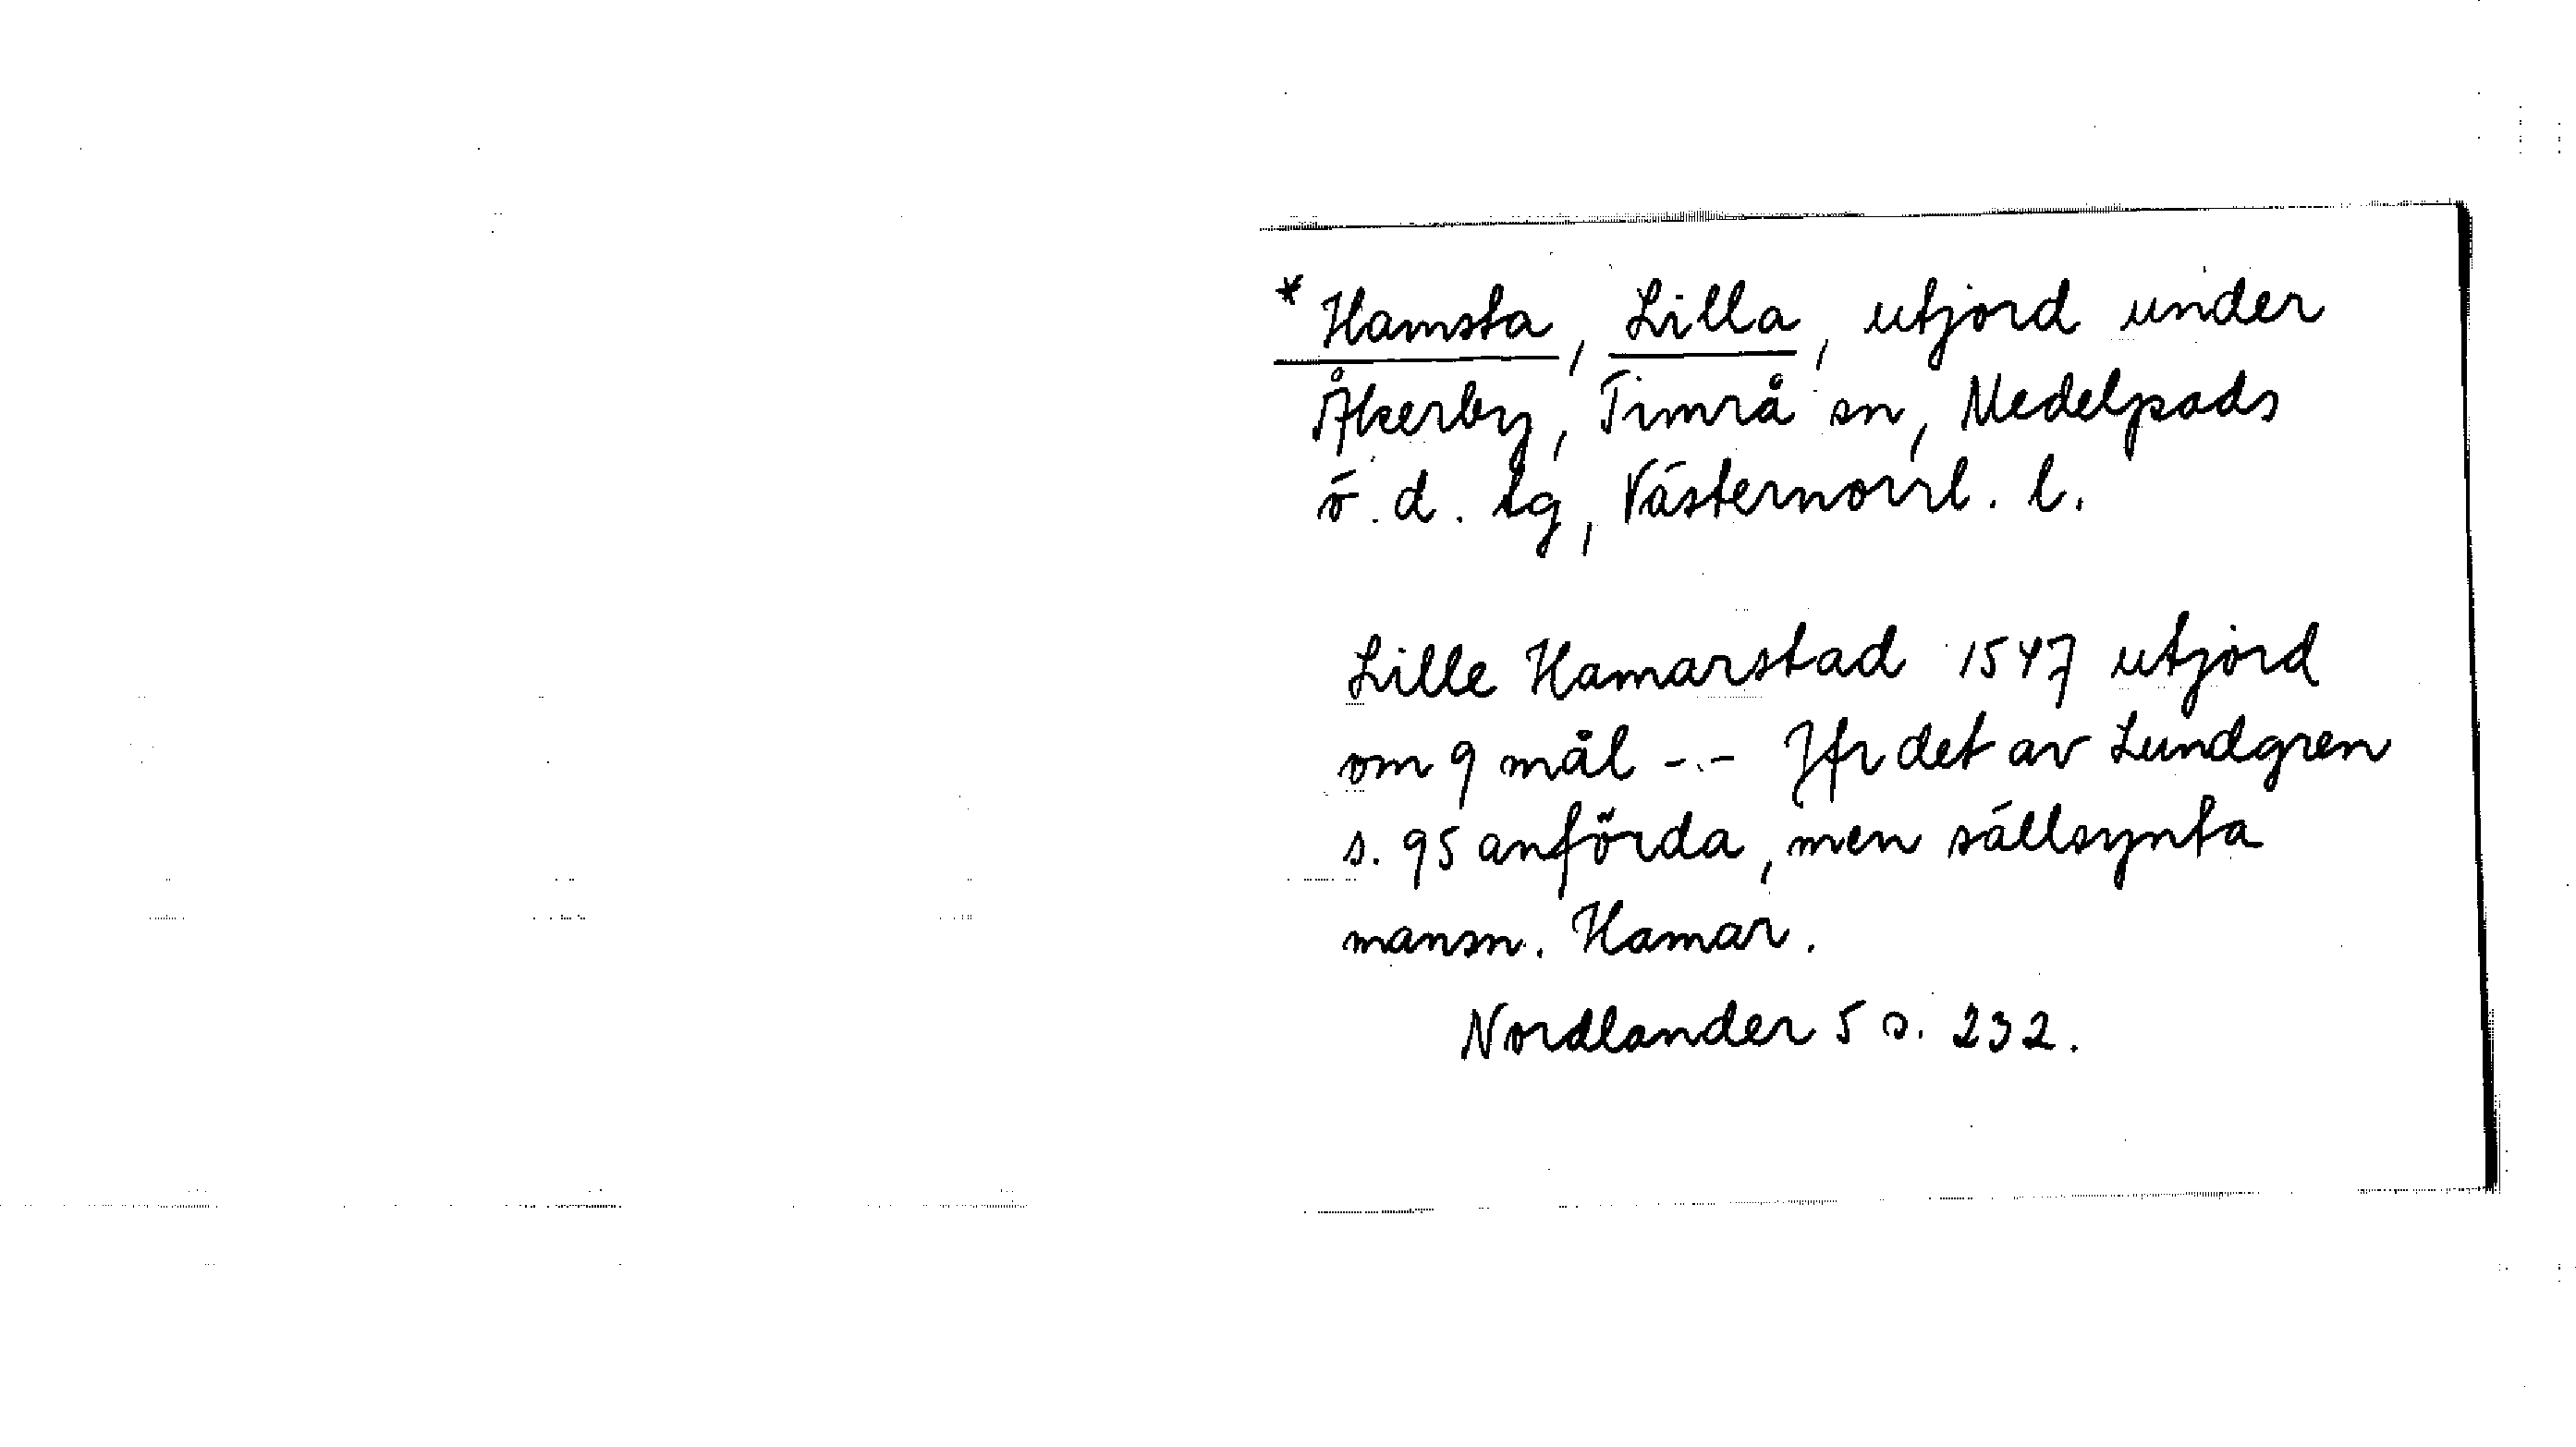 * Hamsta, Lilla, utjord under
Åkerby, Timrå sn, Medelpads
ö. d. tg, Västernorrl. l.
Lille Hamarstad 1547 utjord
om 9 mål -.- Jfr det av Lundgren
s. 95 anförda, men sällsynta
mansn. Hamar.
Nordlander 5 s. 232.